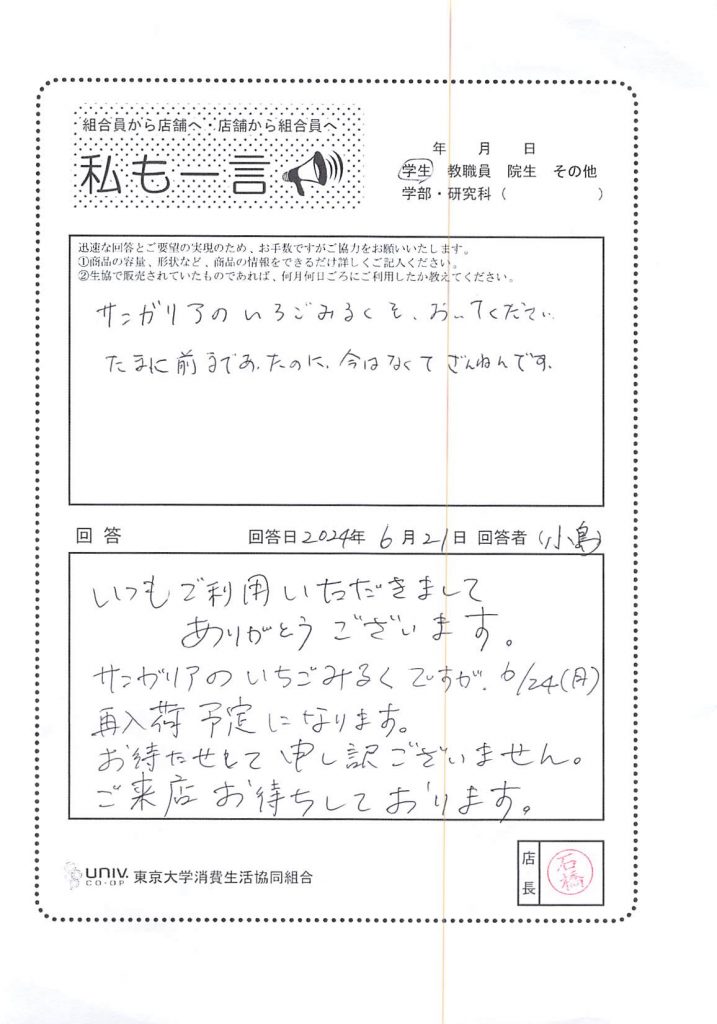 組合員から店舗へ・店舗から組合員へ
私も一言
年 月 日
学生 教職員 院生 その他
学部・研究科（ ）
迅速な回答とご要望の実現のため、お手数ですがご協力をお願いいたします。
①商品の容量、形状など、商品の情報をできるだけ詳しくご記入ください。
②生協で販売されていたものであれば、何月何日ごろにご利用したか教えてください。
サンガリアのいちごみるくを、おいてください
たまに前まであったのに、今はなくてざんねんです。
回答 回答日2024年 6月21日 回答者（小島）
いつもご利用いただきまして
ありがとうございます。
サンガリアのいちごみるくですが、6/24(月)
再入荷予定になります。
お待たせをして申し訳ございません。
ご来店お待ちしております。
UNIV.
CO-OP
東京大学消費生活協同組合
店長
石橋